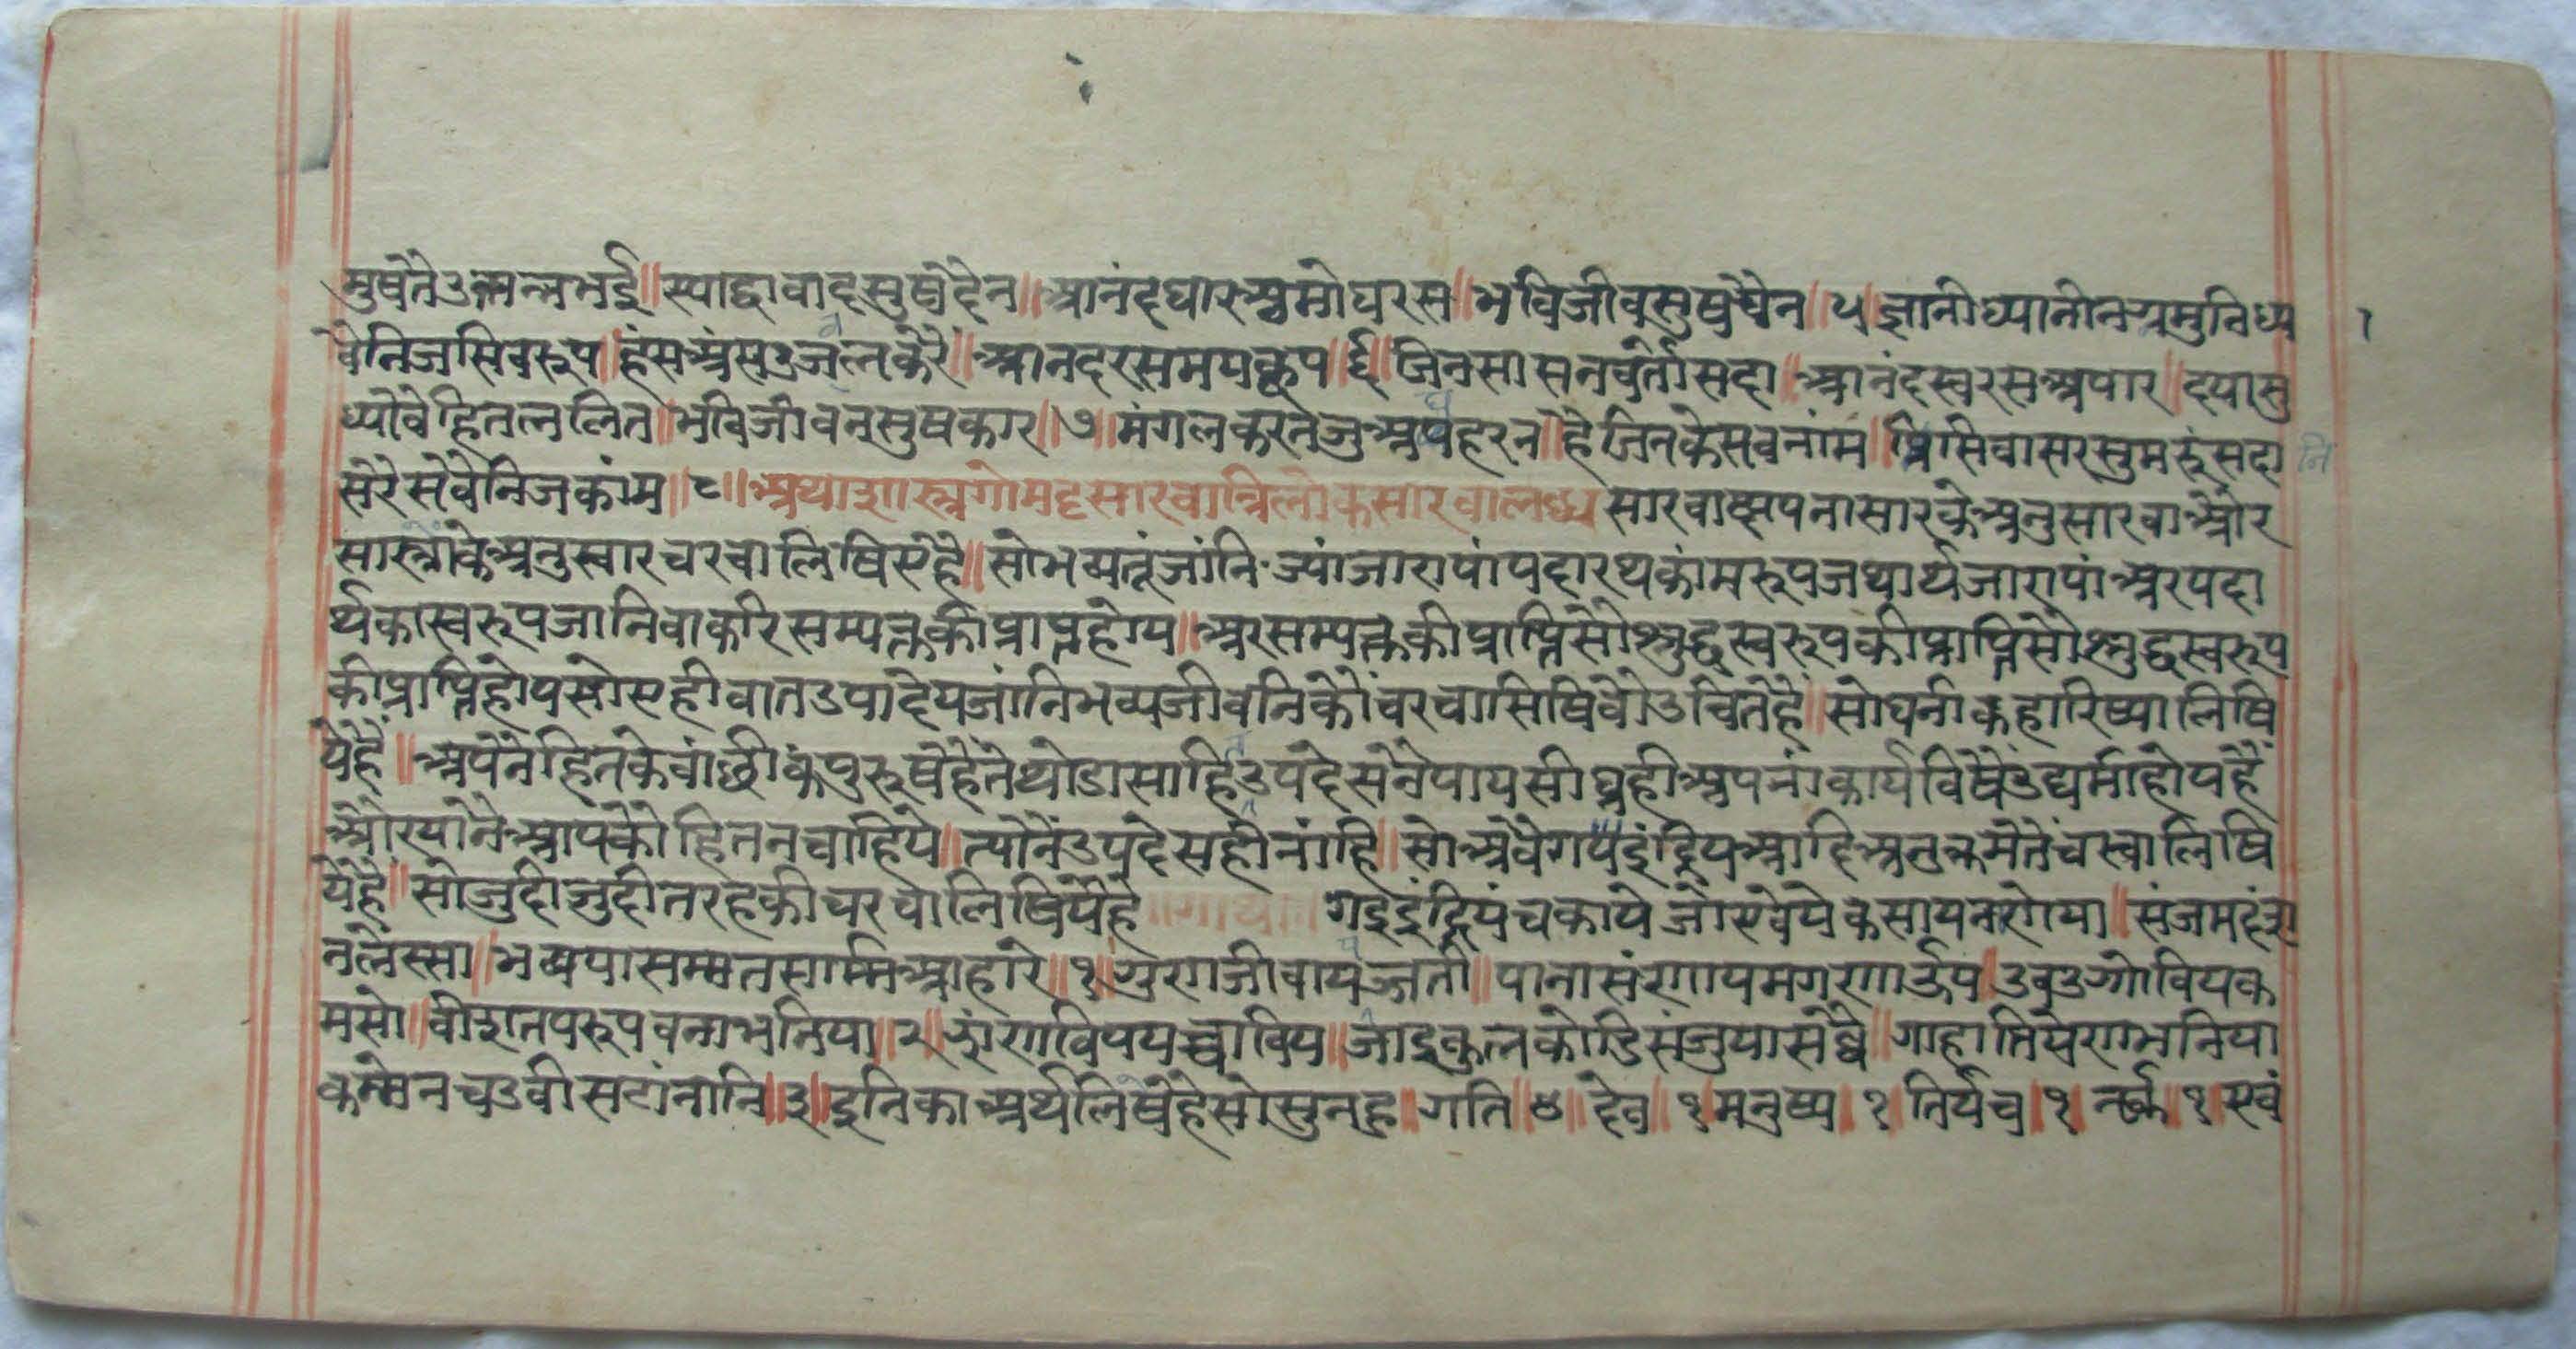 मुषतेउत्पन्नभई॥स्याद्वादवादसुषदेन॥आनंदघारअमोघरस॥भविजीवसुषचैन॥५॥ज्ञानीध्यानीनग्रमुनिध्य १
वेनिजसिवरूप॥हंसअंसउजलकरै॥आनदरसमयकूप॥६॥जिनसासनवर्तोसदा॥आनंदस्वरसअपार॥दयासु
ध्यावेहितललित॥भविजीवनसुषकार॥७॥मंगलकरनजुअघहरन॥हैजिनकेसबनांम॥निसिवासरसुमरूंसदा नि
सरेसवेनिजकांम॥८॥अथाशास्त्रगोमट्टसारवात्रिलोकसारवालध्यसारवाक्षपनासारकेअनुसारवाऔर
सास्त्रांकेअनुस्वारचरचालिषिएहै॥सोभव्यतूंजांनिज्यांजाण्यांपदारथकांमरूपजथार्थजाण्यांअरपदा
र्थकास्वरूपजानिवाकरिसम्यक्तकीप्राप्तहोय॥अरसम्यक्तकीप्राप्तिसोशुद्धस्वरूपकीप्राप्तिसोशुद्धस्वरूप
कीप्राप्तिहोयसोएहीवातउपादेयजांनिभव्यजीवनिकोंचरचासिषिवोउचितहै॥सोघनीकहारिष्यालिषि
येहै॥अपनेहितकेवांछीकपुरूषहैतेथोडासाहिउपदेसनेपायसीघ्रहीअपनांकार्यविषैउद्यमीहोयहै
औरयोनेआपकोहितनचाहिये॥त्योनेंउपदेसहीनांहि॥सोअवेगयइंद्रियआदिअनुक्रमतेंचरचालिषि
येहै॥सोजुदीजुदीतरहकीचरचालिषियेहै॥गाथा॥गइइंद्रियंचकायेजोएवेयेकसायनाणेया॥संजमदंस
नलेस्सा॥भवयासम्मतसन्निआहारे॥१॥गुणजीवापज्जती॥पानासंणायमगरणाऊय॥उवउगोवियक
मसो॥वीशतपरूपवनाभनिया॥२॥झांणावियपच्चाविय॥जाइकुलकोडिसंजुयासव्वे॥गाहातियेणभनिया
कम्मेनचउवीसटांनानि॥३॥इनिकाअर्थलिषेहेसोसुनहु॥गति॥४॥देव॥१॥मनुष्य॥१॥तिर्यंच॥१॥नर्क॥१॥एवं